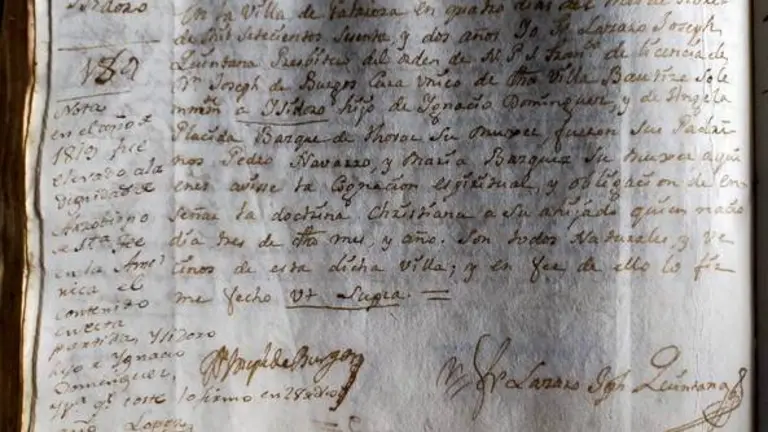 Isidoro
182
Nota
en el año de
1819 fue
elevado a la
dignidad de
Arzobispo
de Sta Fee
en la Ame
rica, el
contenido
en esta
partida, Isidoro
hijo de Ignacio
Dominguez,
y pa. qe. coste lo firmo en 28
Lopez
En la villa de en quatro dias del mes de
de mil setecientos sesenta, y dos años Yo Fr. Lazaro Joseph
Quintana Presbitero del orden de N. P. S. Franco. de licencia de
Dn. Joseph de Burgos Cura Unico de dha Villa Bautize Sole
mnemte. a Isidoro hijo de Ignacio Dominguez, y de Angela
Placida Bazquez de su muxer, fueron sus Padri
nos Pedro Navarro, y Maria Bazquez su muxer a qui
enes avise la Cognacion espiritual, y obligacion de en
señar la doctrina Christiana a su ahijado quien nacio
dia tres de dho mes, y año. Son todos Naturales, y ve
cinos de esta dicha villa; y en fee de ello lo fir
me fecho Ut Supra. =
Dn. Joseph de Burgos
Fr. Lazaro Jph Quintana